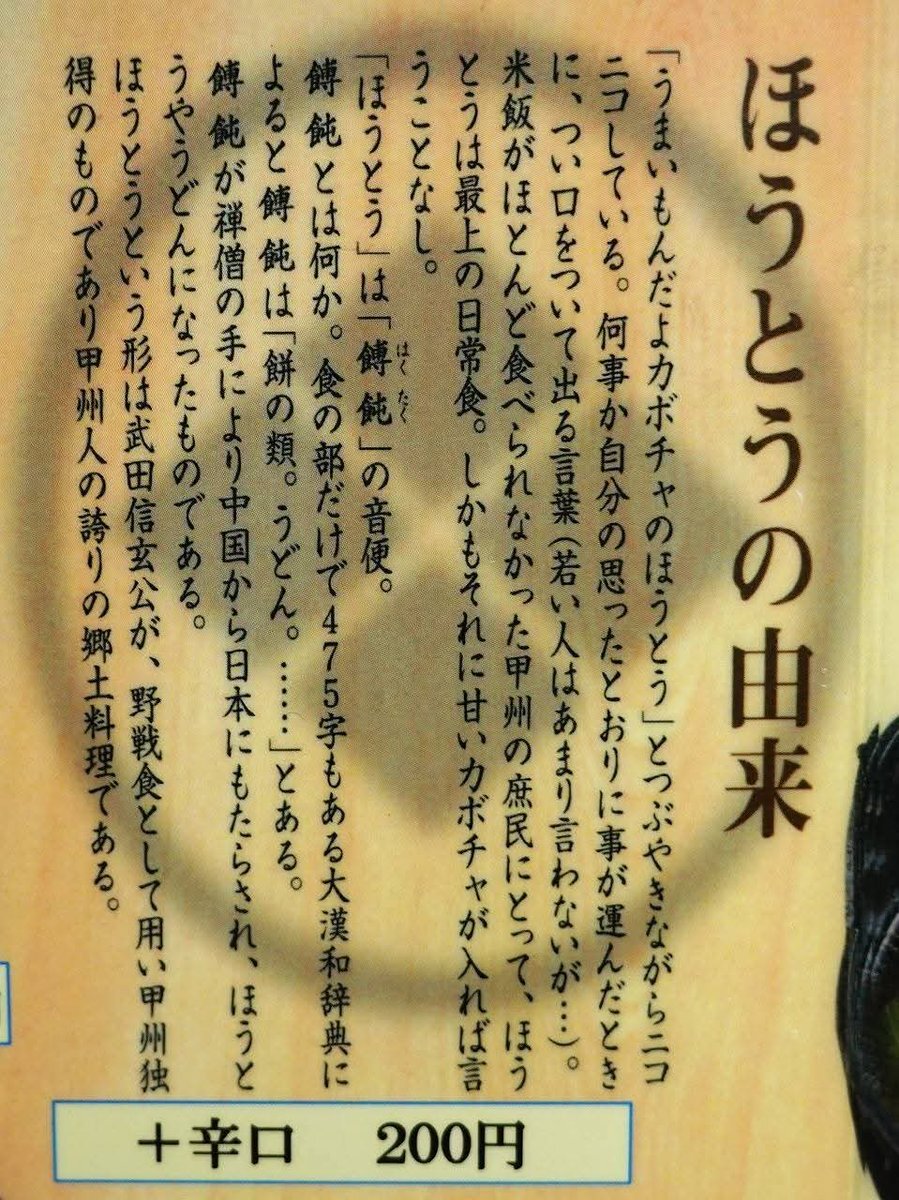 ほうとうの由来
「うまいもんだよカボチャのほうとう」とつぶやきながらニコ
ニコしている。何事か自分の思ったとおりに事が運んだとき
に、つい口をついて出る言葉（若い人はあまり言わないが…）。
米飯がほとんど食べられなかった甲州の庶民にとって、ほう
とうは最上の日常食。しかもそれに甘いカボチャが入れば言
うことなし。
「ほうとう」は「餺飩」の音便。
はく たく
餺飩とは何か。食の部だけで475字もある大漢和辞典に
よると餺飩は「餅の類。うどん。……」とある。
餺飩が禅僧の手により中国から日本にもたらされ、ほうと
うやうどんになったものである。
ほうとうという形は武田信玄公が、野戦食として用い甲州独
得のものであり甲州人の誇りの郷土料理である。
＋辛口　200円